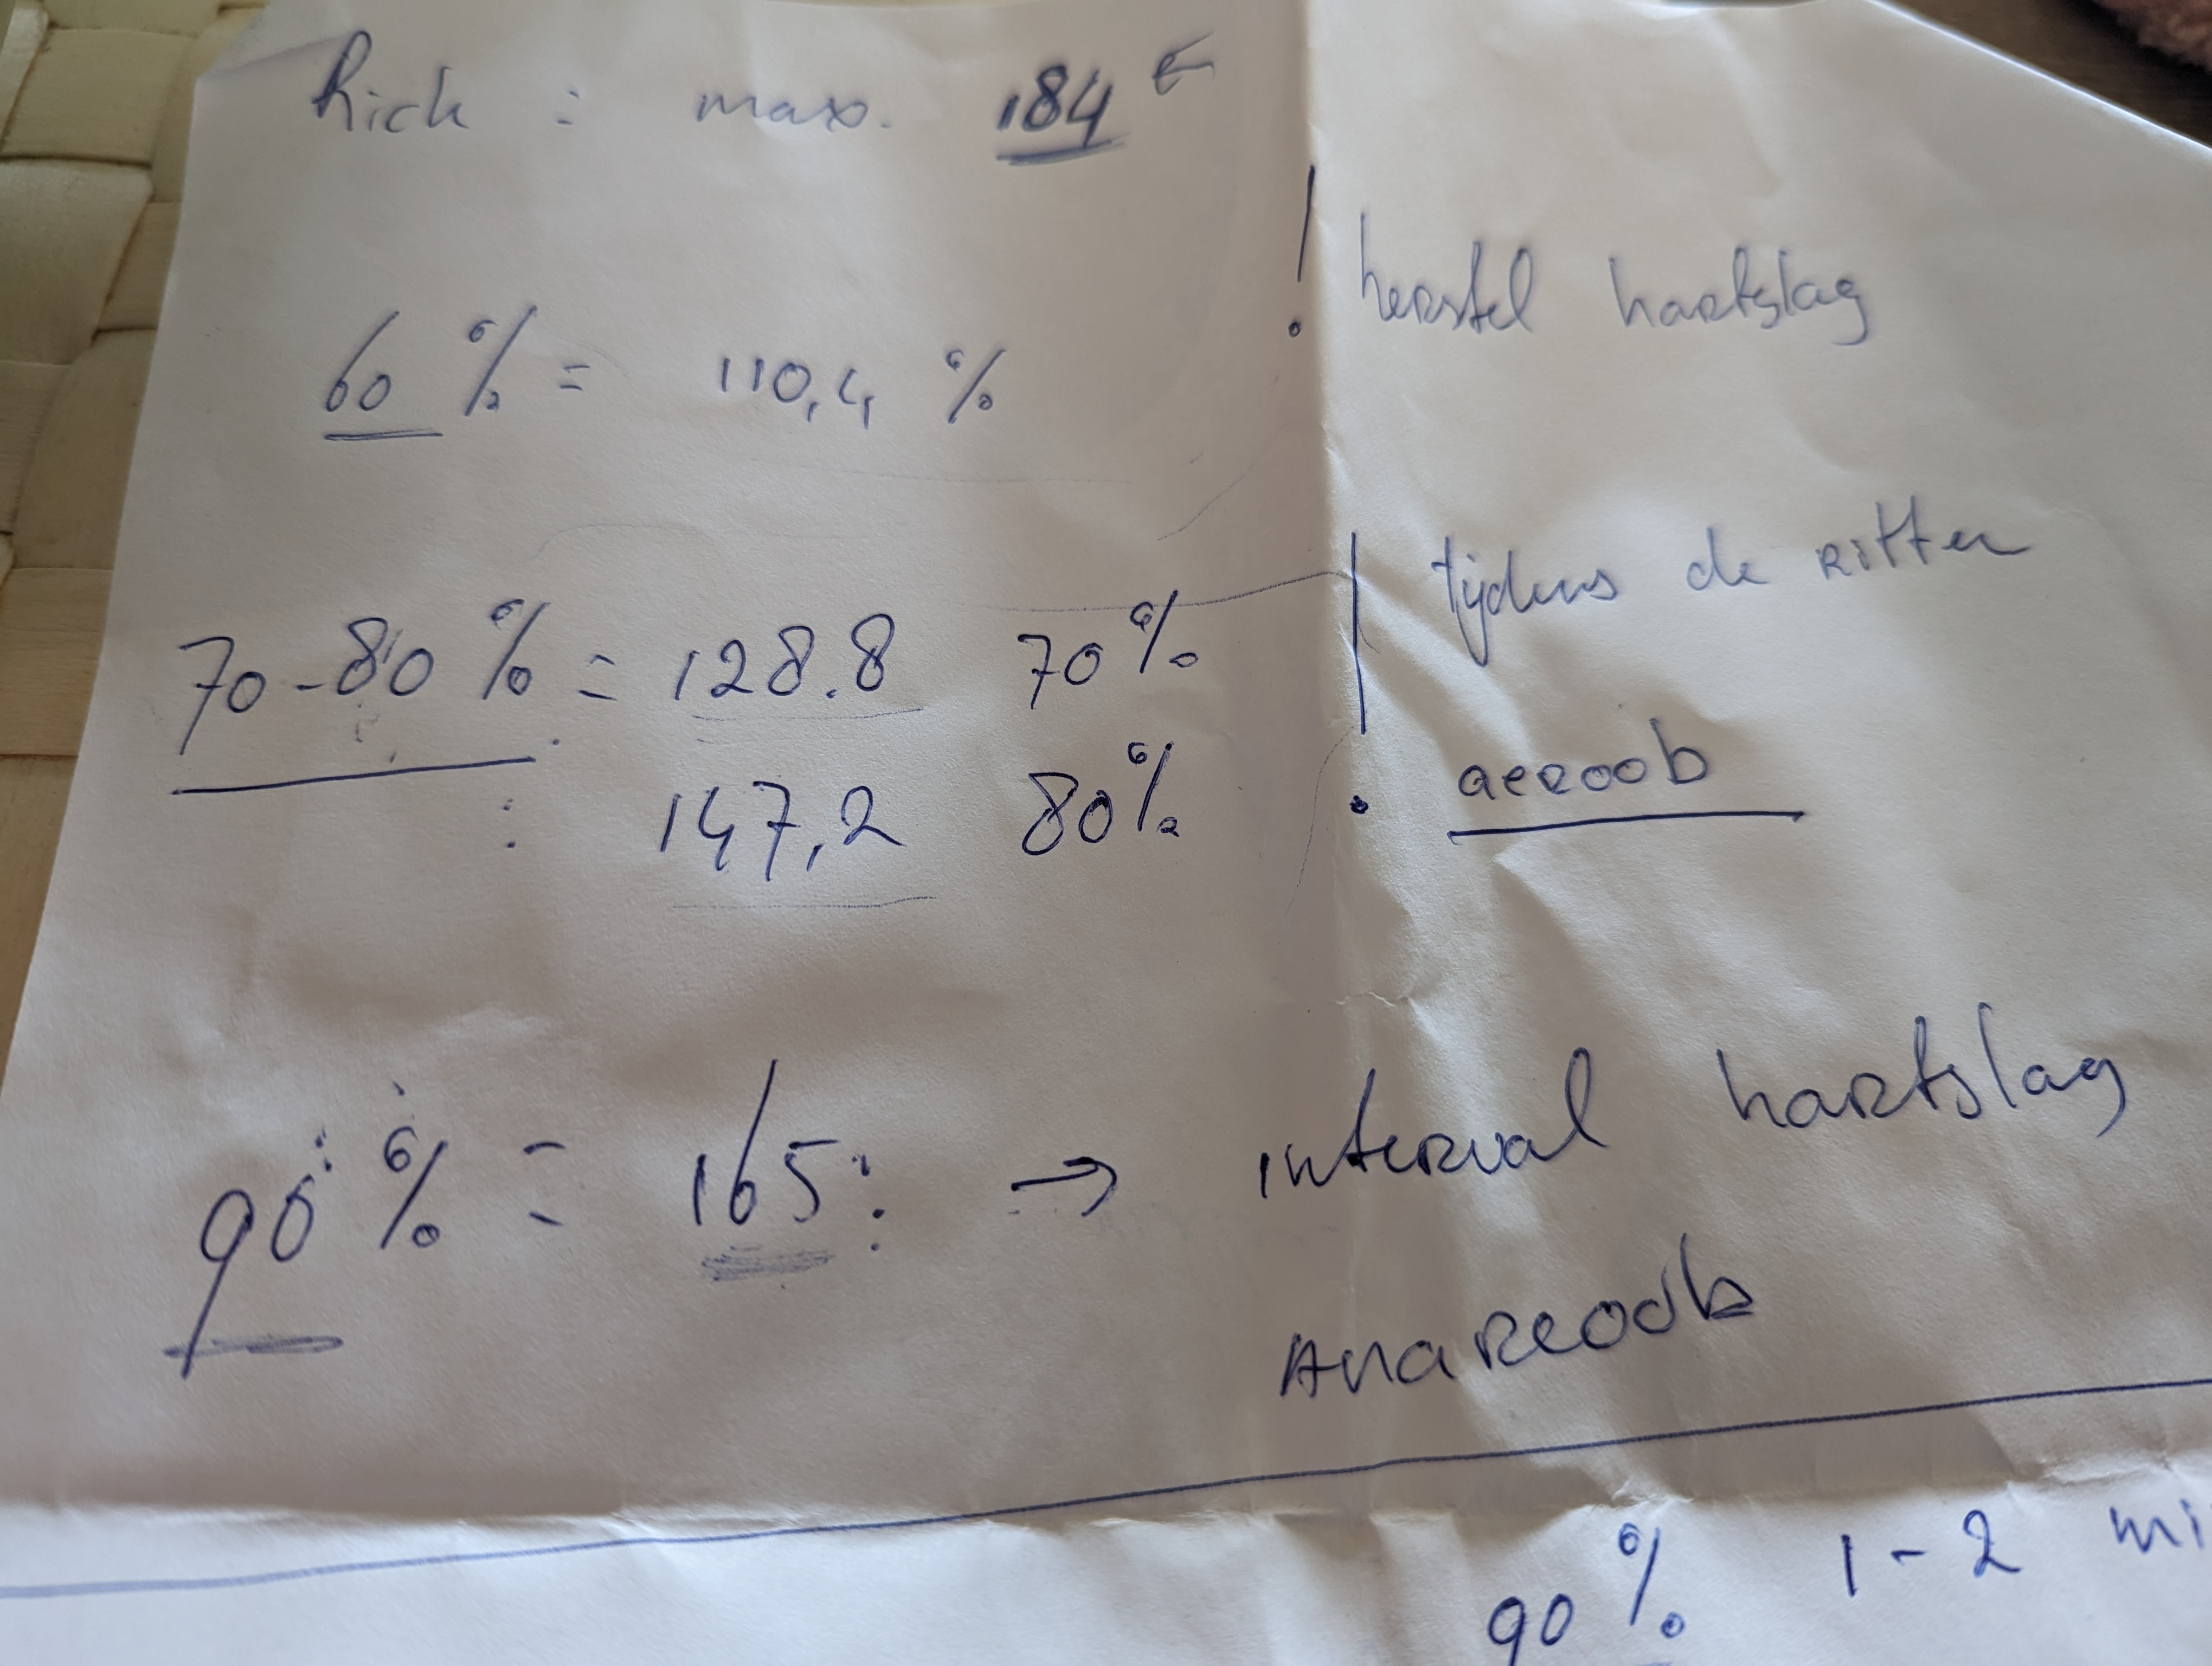 Rick : max. 184 ←
! herstel hartslag
60 % = 110,4 %
tijdens de ritten
70-80 % = 128.8 70%
! aeroob
: 147,2 80%
90 % = 165 : → interval hartslag
Anareoob
90 % 1-2 mi